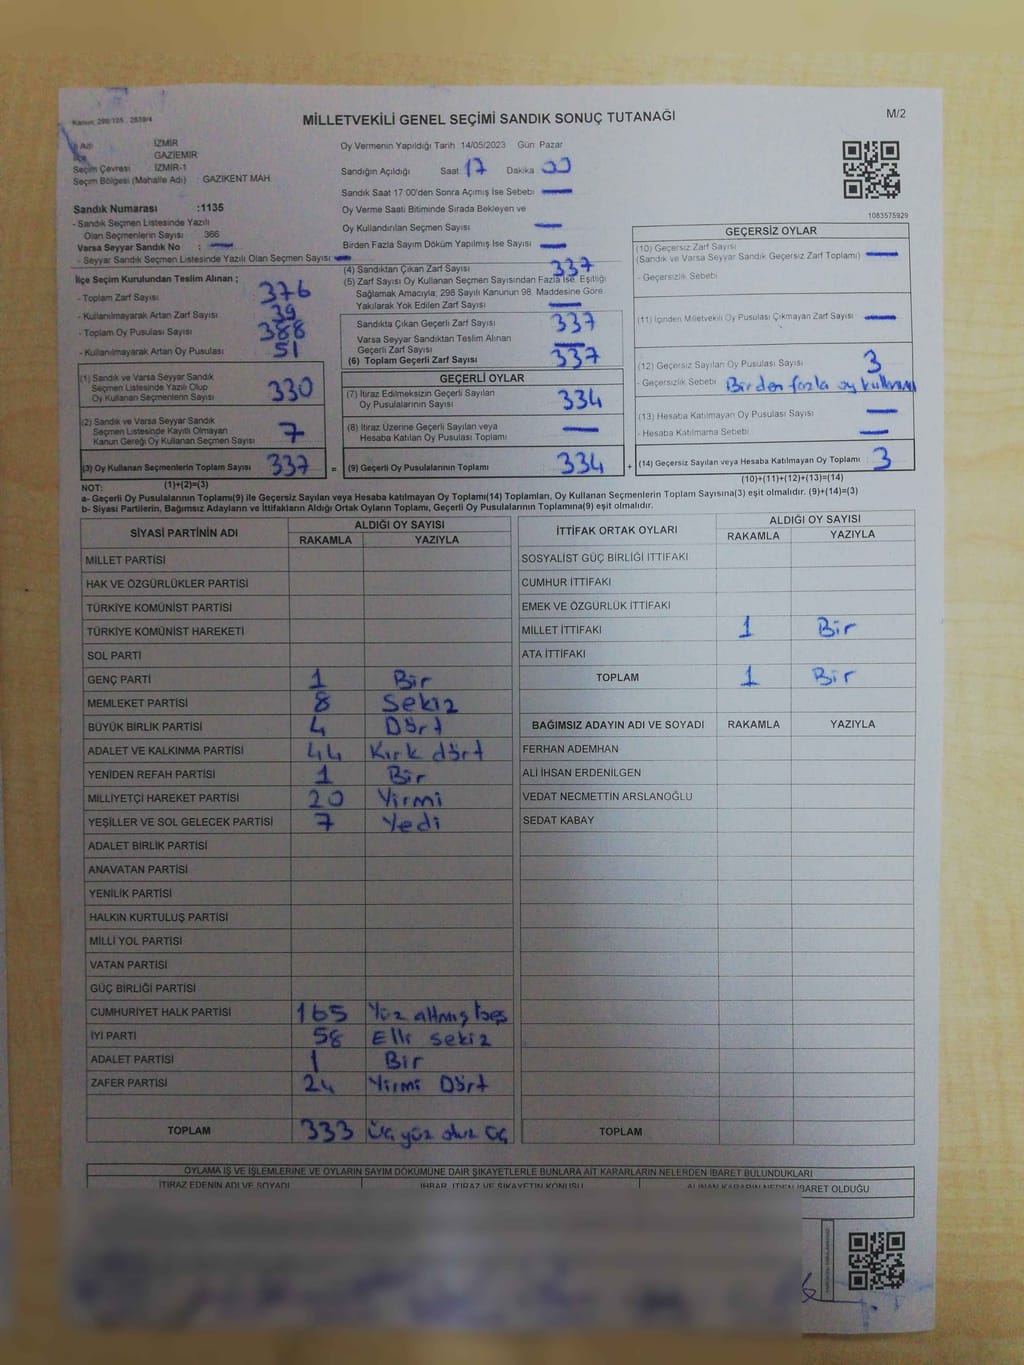 Kanun: 298/105 , 2839/4
MİLLETVEKİLİ GENEL SEÇİMİ SANDIK SONUÇ TUTANAĞI
M/2
Adı İZMİR
İlçe GAZİEMİR
Seçim Çevresi İZMİR-1
Seçim Bölgesi (Mahalle Adı) : GAZİKENT MAH
Sandık Numarası :1135
- Sandık Seçmen Listesinde Yazılı
Olan Seçmenlerin Sayısı 366
Varsa Seyyar Sandık No : —
- Seyyar Sandık Seçmen Listesinde Yazılı Olan Seçmen Sayısı —
İlçe Seçim Kurulundan Teslim Alınan ;
- Toplam Zarf Sayısı 376
- Kullanılmayarak Artan Zarf Sayısı 39
- Toplam Oy Pusulası Sayısı 388
- Kullanılmayarak Artan Oy Pusulası 51
(1) Sandık ve Varsa Seyyar Sandık
Seçmen Listesinde Yazılı Olup
Oy Kullanan Seçmenlerin Sayısı 330
(2) Sandık ve Varsa Seyyar Sandık
Seçmen Listesinde Kayıtlı Olmayan
Kanun Gereği Oy Kullanan Seçmen Sayısı 7
(3) Oy Kullanan Seçmenlerin Toplam Sayısı 337 =
Oy Vermenin Yapıldığı Tarih 14/05/2023 Gün Pazar
Sandığın Açıldığı Saat 17 Dakika 00
Sandık Saat 17:00'den Sonra Açımış İse Sebebi —
Oy Verme Saati Bitiminde Sırada Bekleyen ve
Oy Kullandırılan Seçmen Sayısı —
Birden Fazla Sayım Döküm Yapılmış İse Sayısı —
(4) Sandıktan Çıkan Zarf Sayısı 337
(5) Zarf Sayısı Oy Kullanan Seçmen Sayısından Fazla İse, Eşitliği
Sağlamak Amacıyla, 298 Sayılı Kanunun 98. Maddesine Göre
Yakılarak Yok Edilen Zarf Sayısı —
Sandıkta Çıkan Geçerli Zarf Sayısı 337
Varsa Seyyar Sandıktan Teslim Alınan
Geçerli Zarf Sayısı —
(6) Toplam Geçerli Zarf Sayısı 337
GEÇERLİ OYLAR
(7) İtiraz Edilmeksizin Geçerli Sayılan
Oy Pusulalarının Sayısı 334
(8) İtiraz Üzerine Geçerli Sayılan veya
Hesaba Katılan Oy Pusulası Toplamı —
(9) Geçerli Oy Pusulalarının Toplamı 334 +
1083575929
GEÇERSİZ OYLAR
(10) Geçersiz Zarf Sayısı
(Sandık ve Varsa Seyyar Sandık Geçersiz Zarf Toplamı) —
- Geçersizlik Sebebi
(11) İçinden Milletvekili Oy Pusulası Çıkmayan Zarf Sayısı —
(12) Geçersiz Sayılan Oy Pusulası Sayısı 3
- Geçersizlik Sebebi Birden fazla oy
(13) Hesaba Katılmayan Oy Pusulası Sayısı —
- Hesaba Katılmama Sebebi —
(14) Geçersiz Sayılan veya Hesaba Katılmayan Oy Toplamı 3
NOT: (1)+(2)=(3) (10)+(11)+(12)+(13)=(14)
a- Geçerli Oy Pusulalarının Toplamı(9) ile Geçersiz Sayılan veya Hesaba katılmayan Oy Toplamı(14) Toplamları, Oy Kullanan Seçmenlerin Toplam Sayısına(3) eşit olmalıdır. (9)+(14)=(3)
b- Siyasi Partilerin, Bağımsız Adayların ve İttifakların Aldığı Ortak Oyların Toplamı, Geçerli Oy Pusulalarının Toplamına(9) eşit olmalıdır.
SİYASİ PARTİNİN ADI ALDIĞI OY SAYISI
RAKAMLA YAZIYLA
MİLLET PARTİSİ
HAK VE ÖZGÜRLÜKLER PARTİSİ
TÜRKİYE KOMÜNİST PARTİSİ
TÜRKİYE KOMÜNİST HAREKETİ
SOL PARTİ
GENÇ PARTİ 1 Bir
MEMLEKET PARTİSİ 8 Sekiz
BÜYÜK BİRLİK PARTİSİ 4 Dört
ADALET VE KALKINMA PARTİSİ 44 Kırk dört
YENİDEN REFAH PARTİSİ 1 Bir
MİLLİYETÇİ HAREKET PARTİSİ 20 Yirmi
YEŞİLLER VE SOL GELECEK PARTİSİ 7 Yedi
ADALET BİRLİK PARTİSİ
ANAVATAN PARTİSİ
YENİLİK PARTİSİ
HALKIN KURTULUŞ PARTİSİ
MİLLİ YOL PARTİSİ
VATAN PARTİSİ
GÜÇ BİRLİĞİ PARTİSİ
CUMHURİYET HALK PARTİSİ 165 Yüz altmış beş
İYİ PARTİ 58 Elli sekiz
ADALET PARTİSİ 1 Bir
ZAFER PARTİSİ 24 Yirmi Dört
TOPLAM 333 Üç yüz otuz üç
İTTİFAK ORTAK OYLARI ALDIĞI OY SAYISI
RAKAMLA YAZIYLA
SOSYALİST GÜÇ BİRLİĞİ İTTİFAKI
CUMHUR İTTİFAKI
EMEK VE ÖZGÜRLÜK İTTİFAKI
MİLLET İTTİFAKI 1 Bir
ATA İTTİFAKI
TOPLAM 1 Bir
BAĞIMSIZ ADAYIN ADI VE SOYADI RAKAMLA YAZIYLA
FERHAN ADEMHAN
ALİ İHSAN ERDENİLGEN
VEDAT NECMETTİN ARSLANOĞLU
SEDAT KABAY
TOPLAM
OYLAMA İŞ VE İŞLEMLERİNE VE OYLARIN SAYIM DÖKÜMÜNE DAİR ŞİKAYETLERLE BUNLARA AİT KARARLARIN NELERDEN İBARET BULUNDUKLARI
İTİRAZ EDENİN ADI VE SOYADI İHBAR, İTİRAZ VE ŞİKAYETİN KONUSU ALINAN KARARIN NEDEN İBARET OLDUĞU